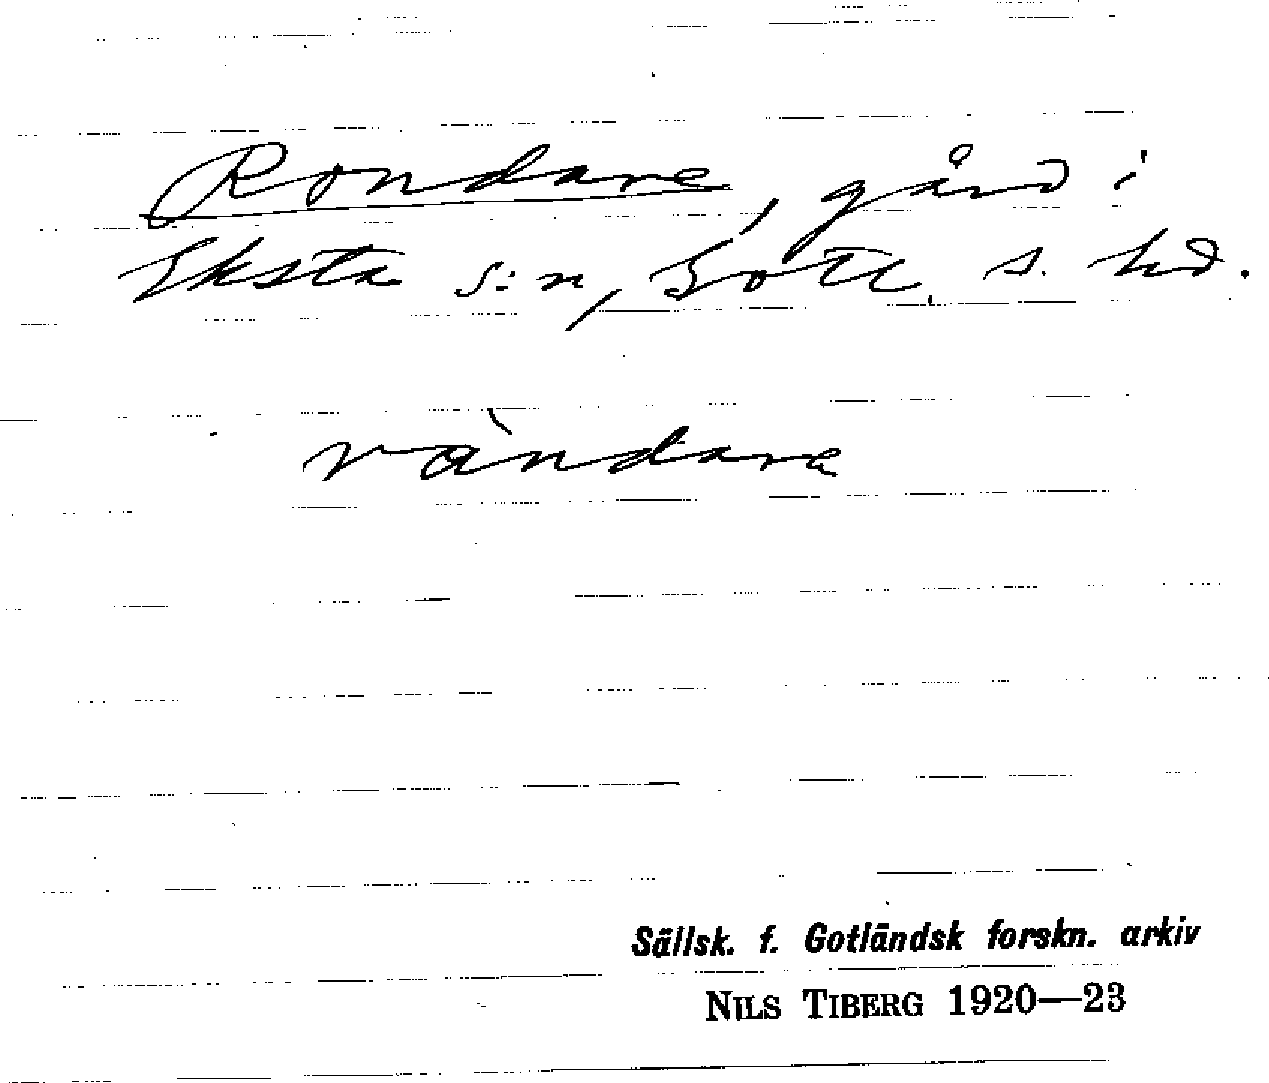 Rondare, gård i
Eksta s:n, Gotl. s. hd.
ràndara
Sällsk. f. Gotländsk forskn. arkiv
NILS TIBERG 1920—23